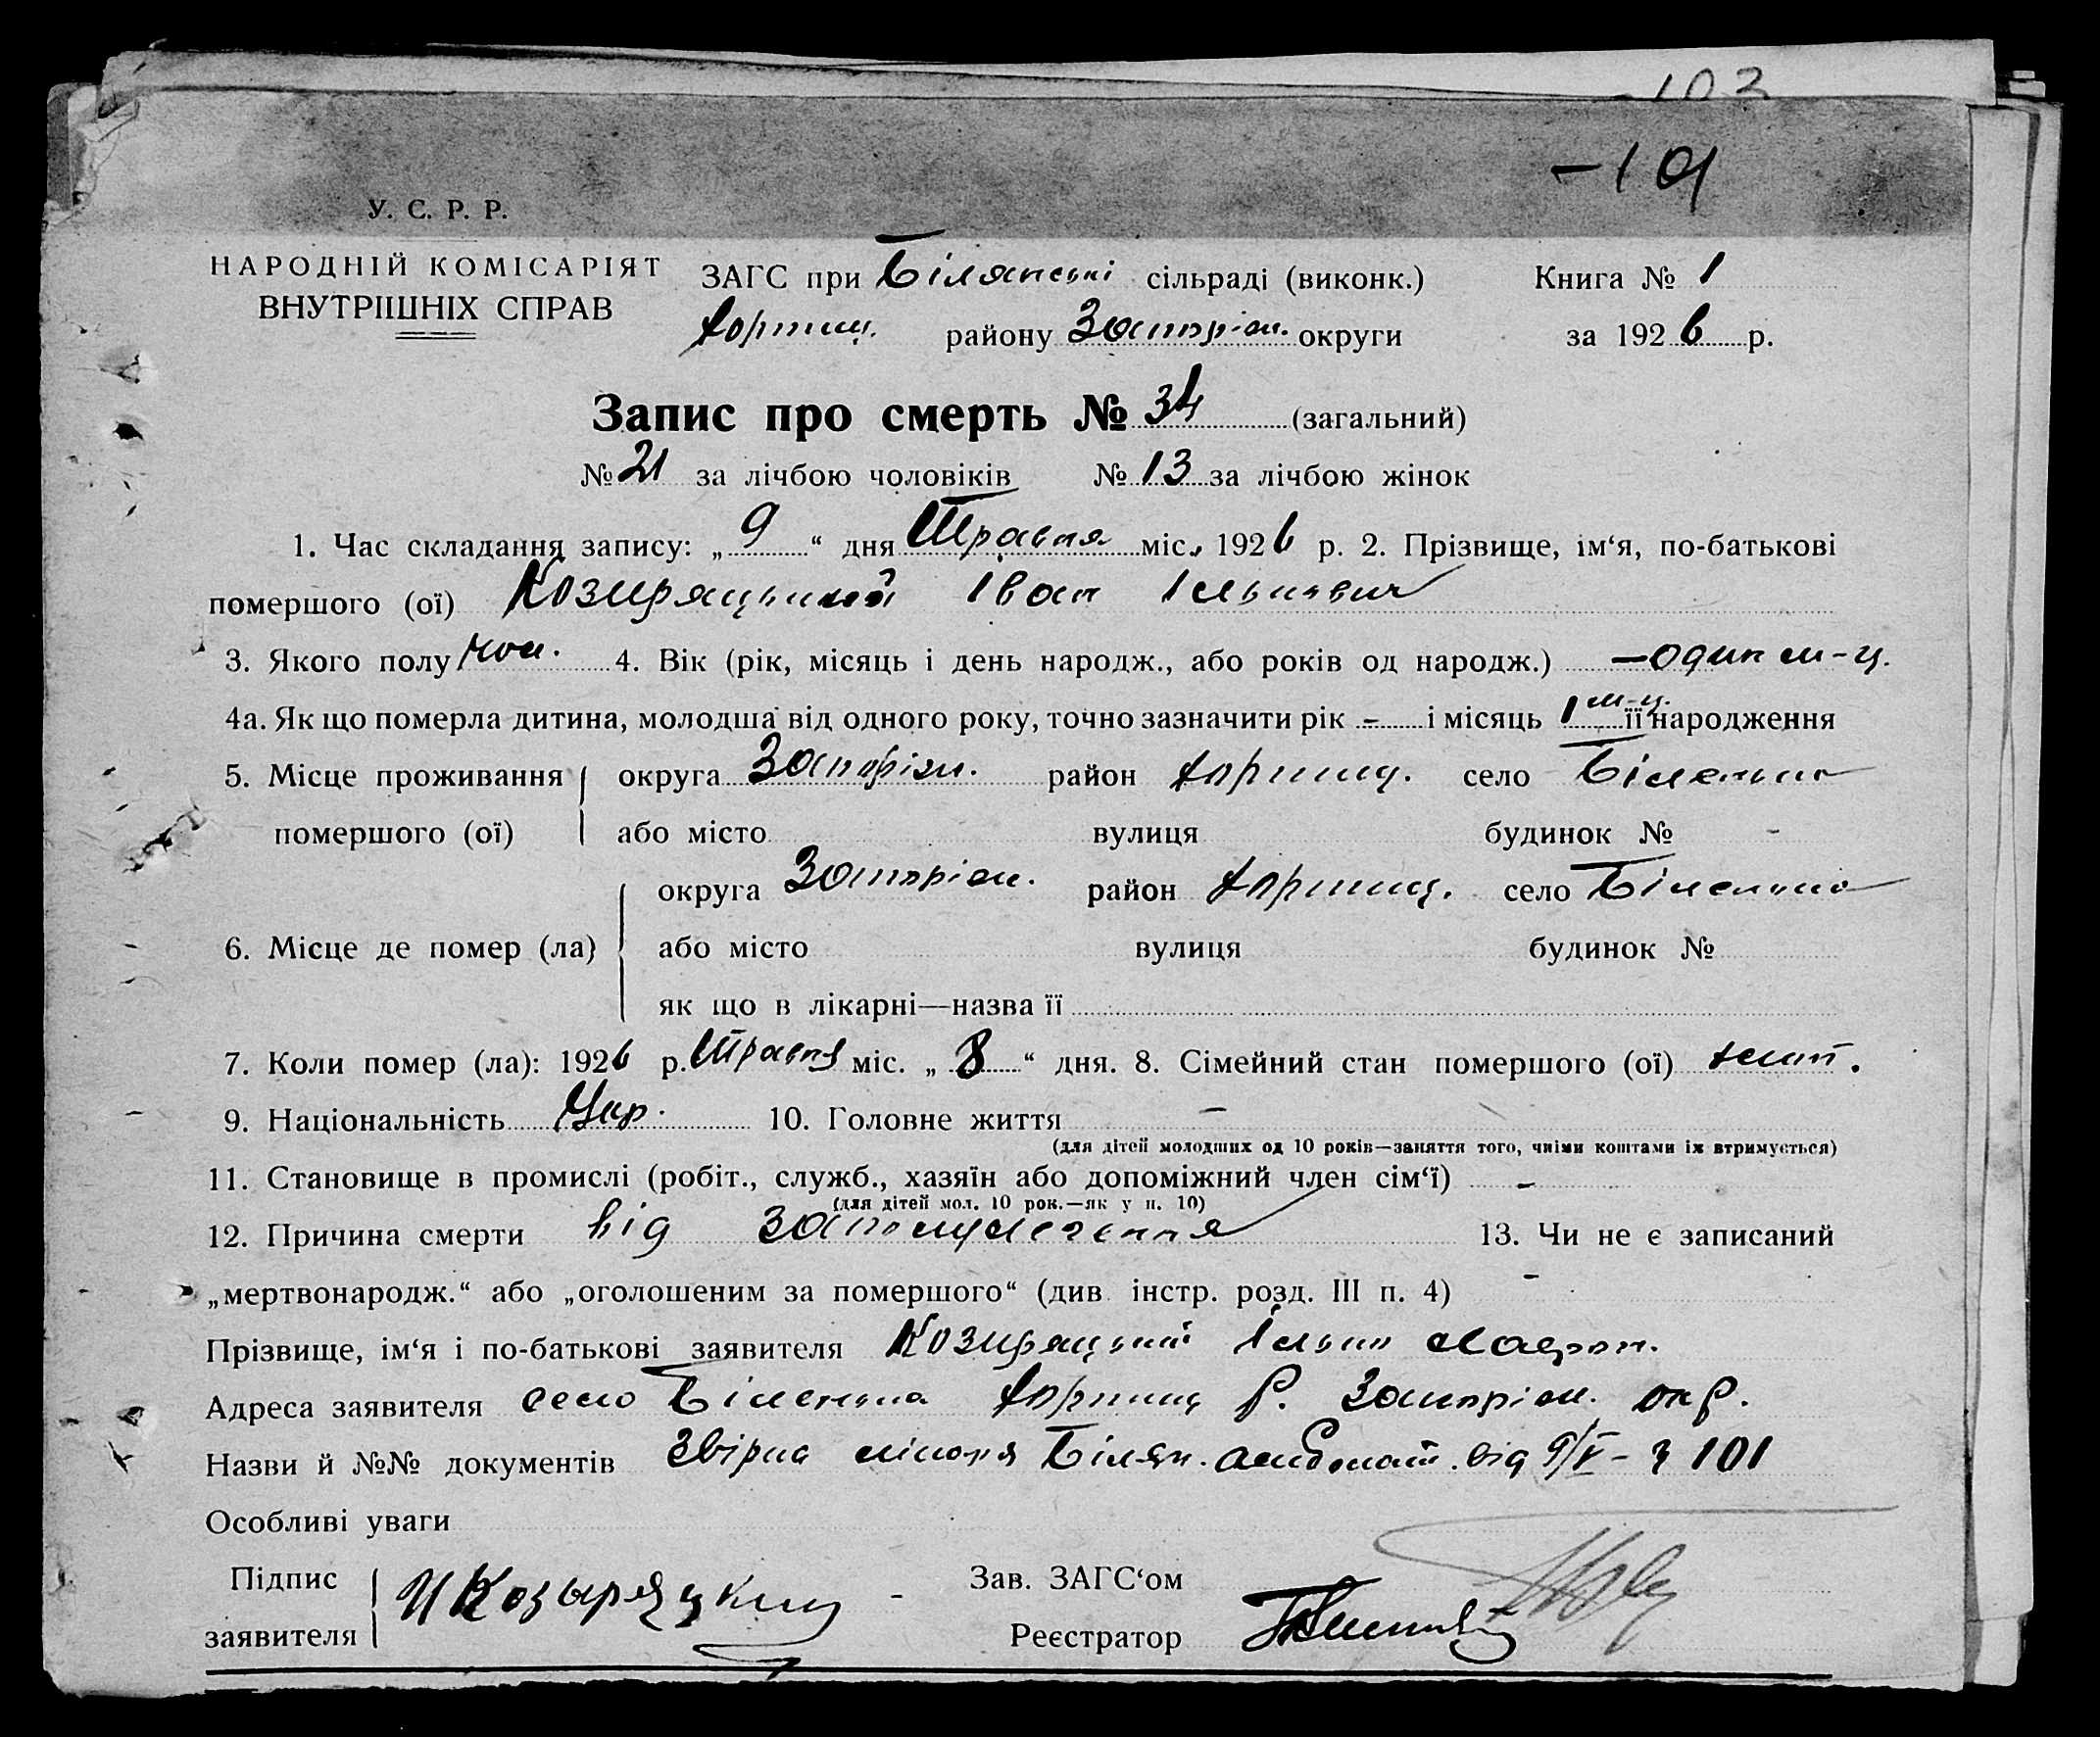 103
-101
У. С. Р. Р.
НАРОДНІЙ КОМІСАРІЯТ
ВНУТРІШНІХ СПРАВ
ЗАГС при Білянські сільраді (виконк.) Книга № 1
Хортиц. району Запоріж. округи за 1926 р.
Запис про смерть № 34 (загальний)
№ 21 за лічбою чоловіків № 13 за лічбою жінок
1. Час складання запису: „ 9 “ дня Травня міс. 1926 р. 2. Прізвище, ім‘я, по-батькові
помершого (ої) Козиряцький Іван Ількович
3. Якого полу чол. 4. Вік (рік, місяць і день народж., або років од народж.) — один м-ц.
4а. Як що померла дитина, молодша від одного року, точно зазначити рік - і місяць 1 м-ц. її народження
5. Місце проживання округа Запоріж. район Хортиц. село Біленька
помершого (ої) або місто вулиця будинок № -
округа Запоріж. район Хортиц. село Біленька
6. Місце де помер (ла) або місто вулиця будинок №
як що в лікарні—назва її
7. Коли помер (ла): 1926 р. Травня міс. „ 8 “ дня. 8. Сімейний стан помершого (ої)
9. Національність Укр. 10. Головне життя —
(для дітей молодших од 10 років—заняття того, чиїми коштами їх втримується)
11. Становище в промислі (робіт., служб., хазяїн або допоміжний член сім‘ї) -
(для дітей мол. 10 рок.—як у п. 10)
12. Причина смерти від 13. Чи не є записаний
„мертвонародж.“ або „оголошеним за помершого“ (див. інстр. розд. III п. 4) -
Прізвище, ім‘я і по-батькові заявителя Козиряцький Ілько
Адреса заявителя село Біленька Хортиц р. Запоріж. окр.
Назви й №№ документів Білян. від 9/V - 101
Особливі уваги
Підпис И Козыряцкий Зав. ЗАГС‘ом
заявителя Реєстратор